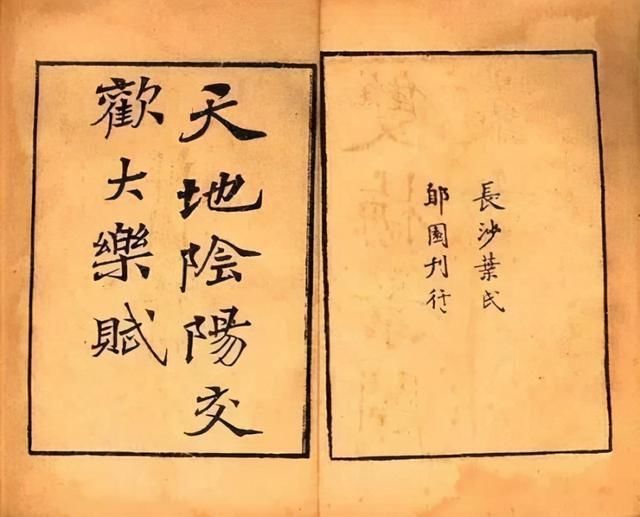 天地陰陽交
歡大樂賦
長沙葉氏
郋園刊行